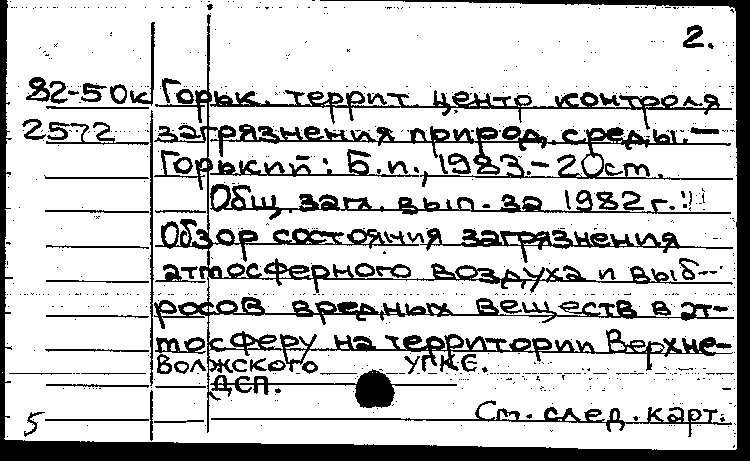 2.
82-50к Горьк. террит. центр контроля
2572 загрязнения природ. среды.—
Горький: Б.п., 1983.-20ст.
Общ. загл. вып. за 1982г.:
Обзор состояния загрязнения
атмосферного воздуха и выб-
росов вредных веществ в ат-
тосферу на территории Верхне-
Волжского УГКС.
ДСП.
5 См. след. карт.